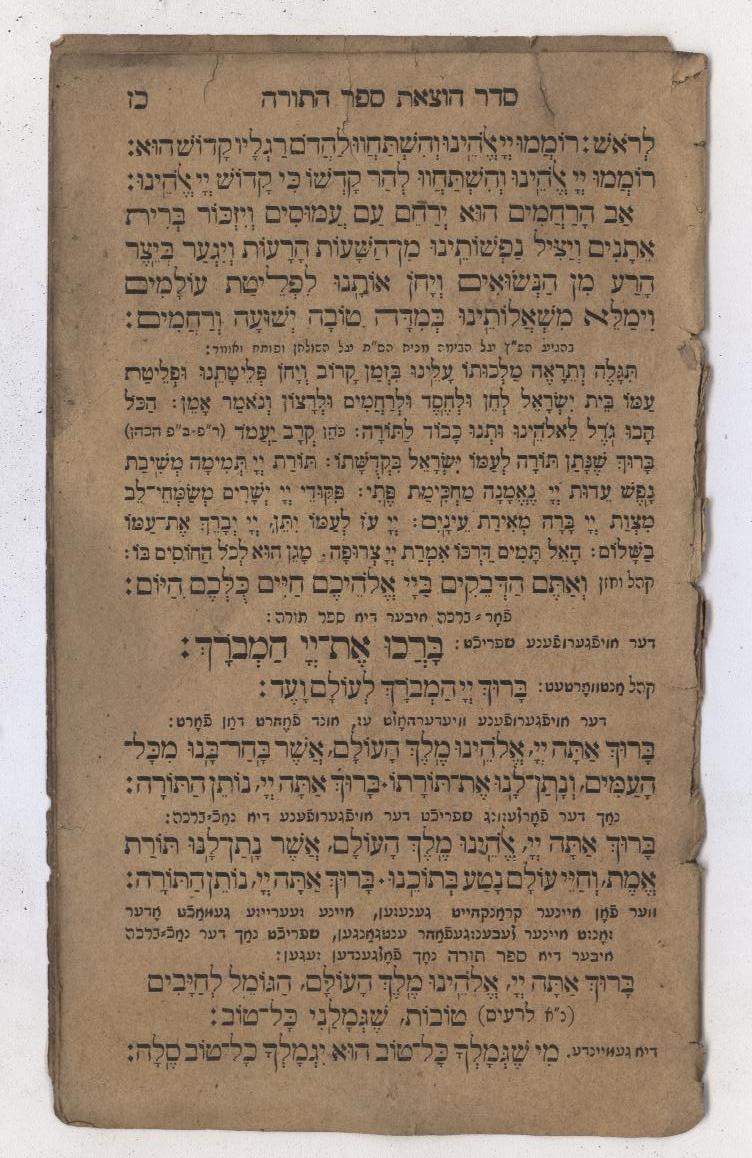 סדר הוצאת ספר התורה כז
לְרֹאשׁ: רוֹמְמוּ יְיָ אֱלֹהֵֽינוּ וְהִשְׁתַּחֲווּ לַהֲדֹם רַגְלָיו קָדוֹשׁ הוּא:
רוֹמְמוּ יְיָ אֱלֹהֵֽינוּ וְהִשְׁתַּחֲווּ לְהַר קָדְשׁוֹ כִּי קָדוֹשׁ יְיָ אֱלֹהֵֽינוּ:
אַב הָרַחֲמִים הוּא יְרַחֵם עַם עֲמוּסִים וְיִזְכּוֹר בְּרִית
אֵתָנִים וְיַצִּיל נַפְשׁוֹתֵֽינוּ מִן־הַשָּׁעוֹת הָרָעוֹת וְיִגְעַר בְּיֵֽצֶר
הָרַע מִן הַנְּשׂוּאִים וְיָחֹן אוֹתָֽנוּ לִפְלֵיטַת עוֹלָמִים
וִימַלֵּא מִשְׁאֲלוֹתֵֽינוּ בְּמִדָּה טוֹבָה יְשׁוּעָה וְרַחֲמִים:
בהגיע הש״ץ על הבימה מניח הס״ת על השולחן ופותח ואומר:
תִּגָּלֶה וְתֵרָאֶה מַלְכוּתוֹ עָלֵֽינוּ בִּזְמַן קָרוֹב וְיָחֹן פְּלֵיטָתֵֽנוּ וּפְלֵיטַת
עַמּוֹ בֵּית יִשְׂרָאֵל לְחֵן וּלְחֶֽסֶד וּלְרַחֲמִים וּלְרָצוֹן וְנֹאמַר אָמֵן: הַכֹּל
הָבוּ גֹֽדֶל לֵאלֹהֵֽינוּ וּתְנוּ כָבוֹד לַתּוֹרָה: כֹּהֵן קְרָב יַעֲמֹד (ר״פ־ב״פ הכהן)
בָּרוּךְ שֶׁנָּתַן תּוֹרָה לְעַמּוֹ יִשְׂרָאֵל בִּקְדֻשָּׁתוֹ: תּוֹרַת יְיָ תְּמִימָה מְשִׁיבַת
נָֽפֶשׁ עֵדוּת יְיָ נֶאֱמָנָה מַחְכִּימַת פֶּֽתִי: פִּקּוּדֵי יְיָ יְשָׁרִים מְשַׂמְּחֵי־לֵב
מִצְוַת יְיָ בָּרָה מְאִירַת עֵינָֽיִם: יְיָ עֹז לְעַמּוֹ יִתֵּן, יְיָ יְבָרֵךְ אֶת־עַמּוֹ
בַשָּׁלוֹם: הָאֵל תָּמִים דַּרְכּוֹ אִמְרַת יְיָ צְרוּפָה. מָגֵן הוּא לְכֹל הַחוֹסִים בּוֹ:
קהל וחזן וְאַתֶּם הַדְּבֵקִים בַּיְיָ אֱלֹהֵיכֶם חַיִּים כֻּלְּכֶם הַיּוֹם:
פֿאָר־ברכה איבער דיא ספר תורה:
דער אויפֿגערופֿענע שפריכט: בָּרְכוּ אֶת־יְיָ הַמְבֹרָךְ:
קהל אנטוואָרטעט: בָּרוּךְ יְיָ הַמְבֹרָךְ לְעוֹלָם וָעֶד:
דער אויפֿגערופֿענע וויעדערהאָלט עז, אונד פֿאֶהרט דאן פֿאָרט:
בָּרוּךְ אַתָּה יְיָ, אֱלֹהֵֽינוּ מֶֽלֶךְ הָעוֹלָם, אֲשֶׁר בָּחַר־בָּֽנוּ מִכָּל־
הָעַמִּים, וְנָתַן־לָֽנוּ אֶת־תּוֹרָתוֹ. בָּרוּךְ אַתָּה יְיָ, נוֹתֵן הַתּוֹרָה:
נאך דער פֿאָרלעזונג שפריכט דער אויפֿגערופֿענע דיא נאך־ברכה:
בָּרוּךְ אַתָּה יְיָ, אֱלֹהֵֽינוּ מֶֽלֶךְ הָעוֹלָם, אֲשֶׁר נָתַן־לָֽנוּ תּוֹרַת
אֱמֶת, וְחַיֵּי עוֹלָם נָטַע בְּתוֹכֵֽנוּ. בָּרוּךְ אַתָּה יְיָ, נוֹתֵן הַתּוֹרָה:
ווער פֿאָן איינער קראנקהייט גענעזען, איינע זעערייזע געמאכט אָדער
זאָנסט איינער לעבענזגעפֿאהר ענטגאנגען, שפריכט נאך דער נאך־ברכה
איבער דיא ספר תורה נאך פֿאָלגענדען זעגען:
בָּרוּךְ אַתָּה יְיָ, אֱלֹהֵֽינוּ מֶֽלֶךְ הָעוֹלָם, הַגּוֹמֵל לְחַיָּבִים
(נ״א לרעים) טוֹבוֹת, שֶׁגְּמָלַֽנִי כָּל־טוֹב:
דיא געמיינדע. מִי שֶׁגְּמָלְךָ כָּל־טוֹב הוּא יִגְמָלְךָ כָּל־טוֹב סֶֽלָה: